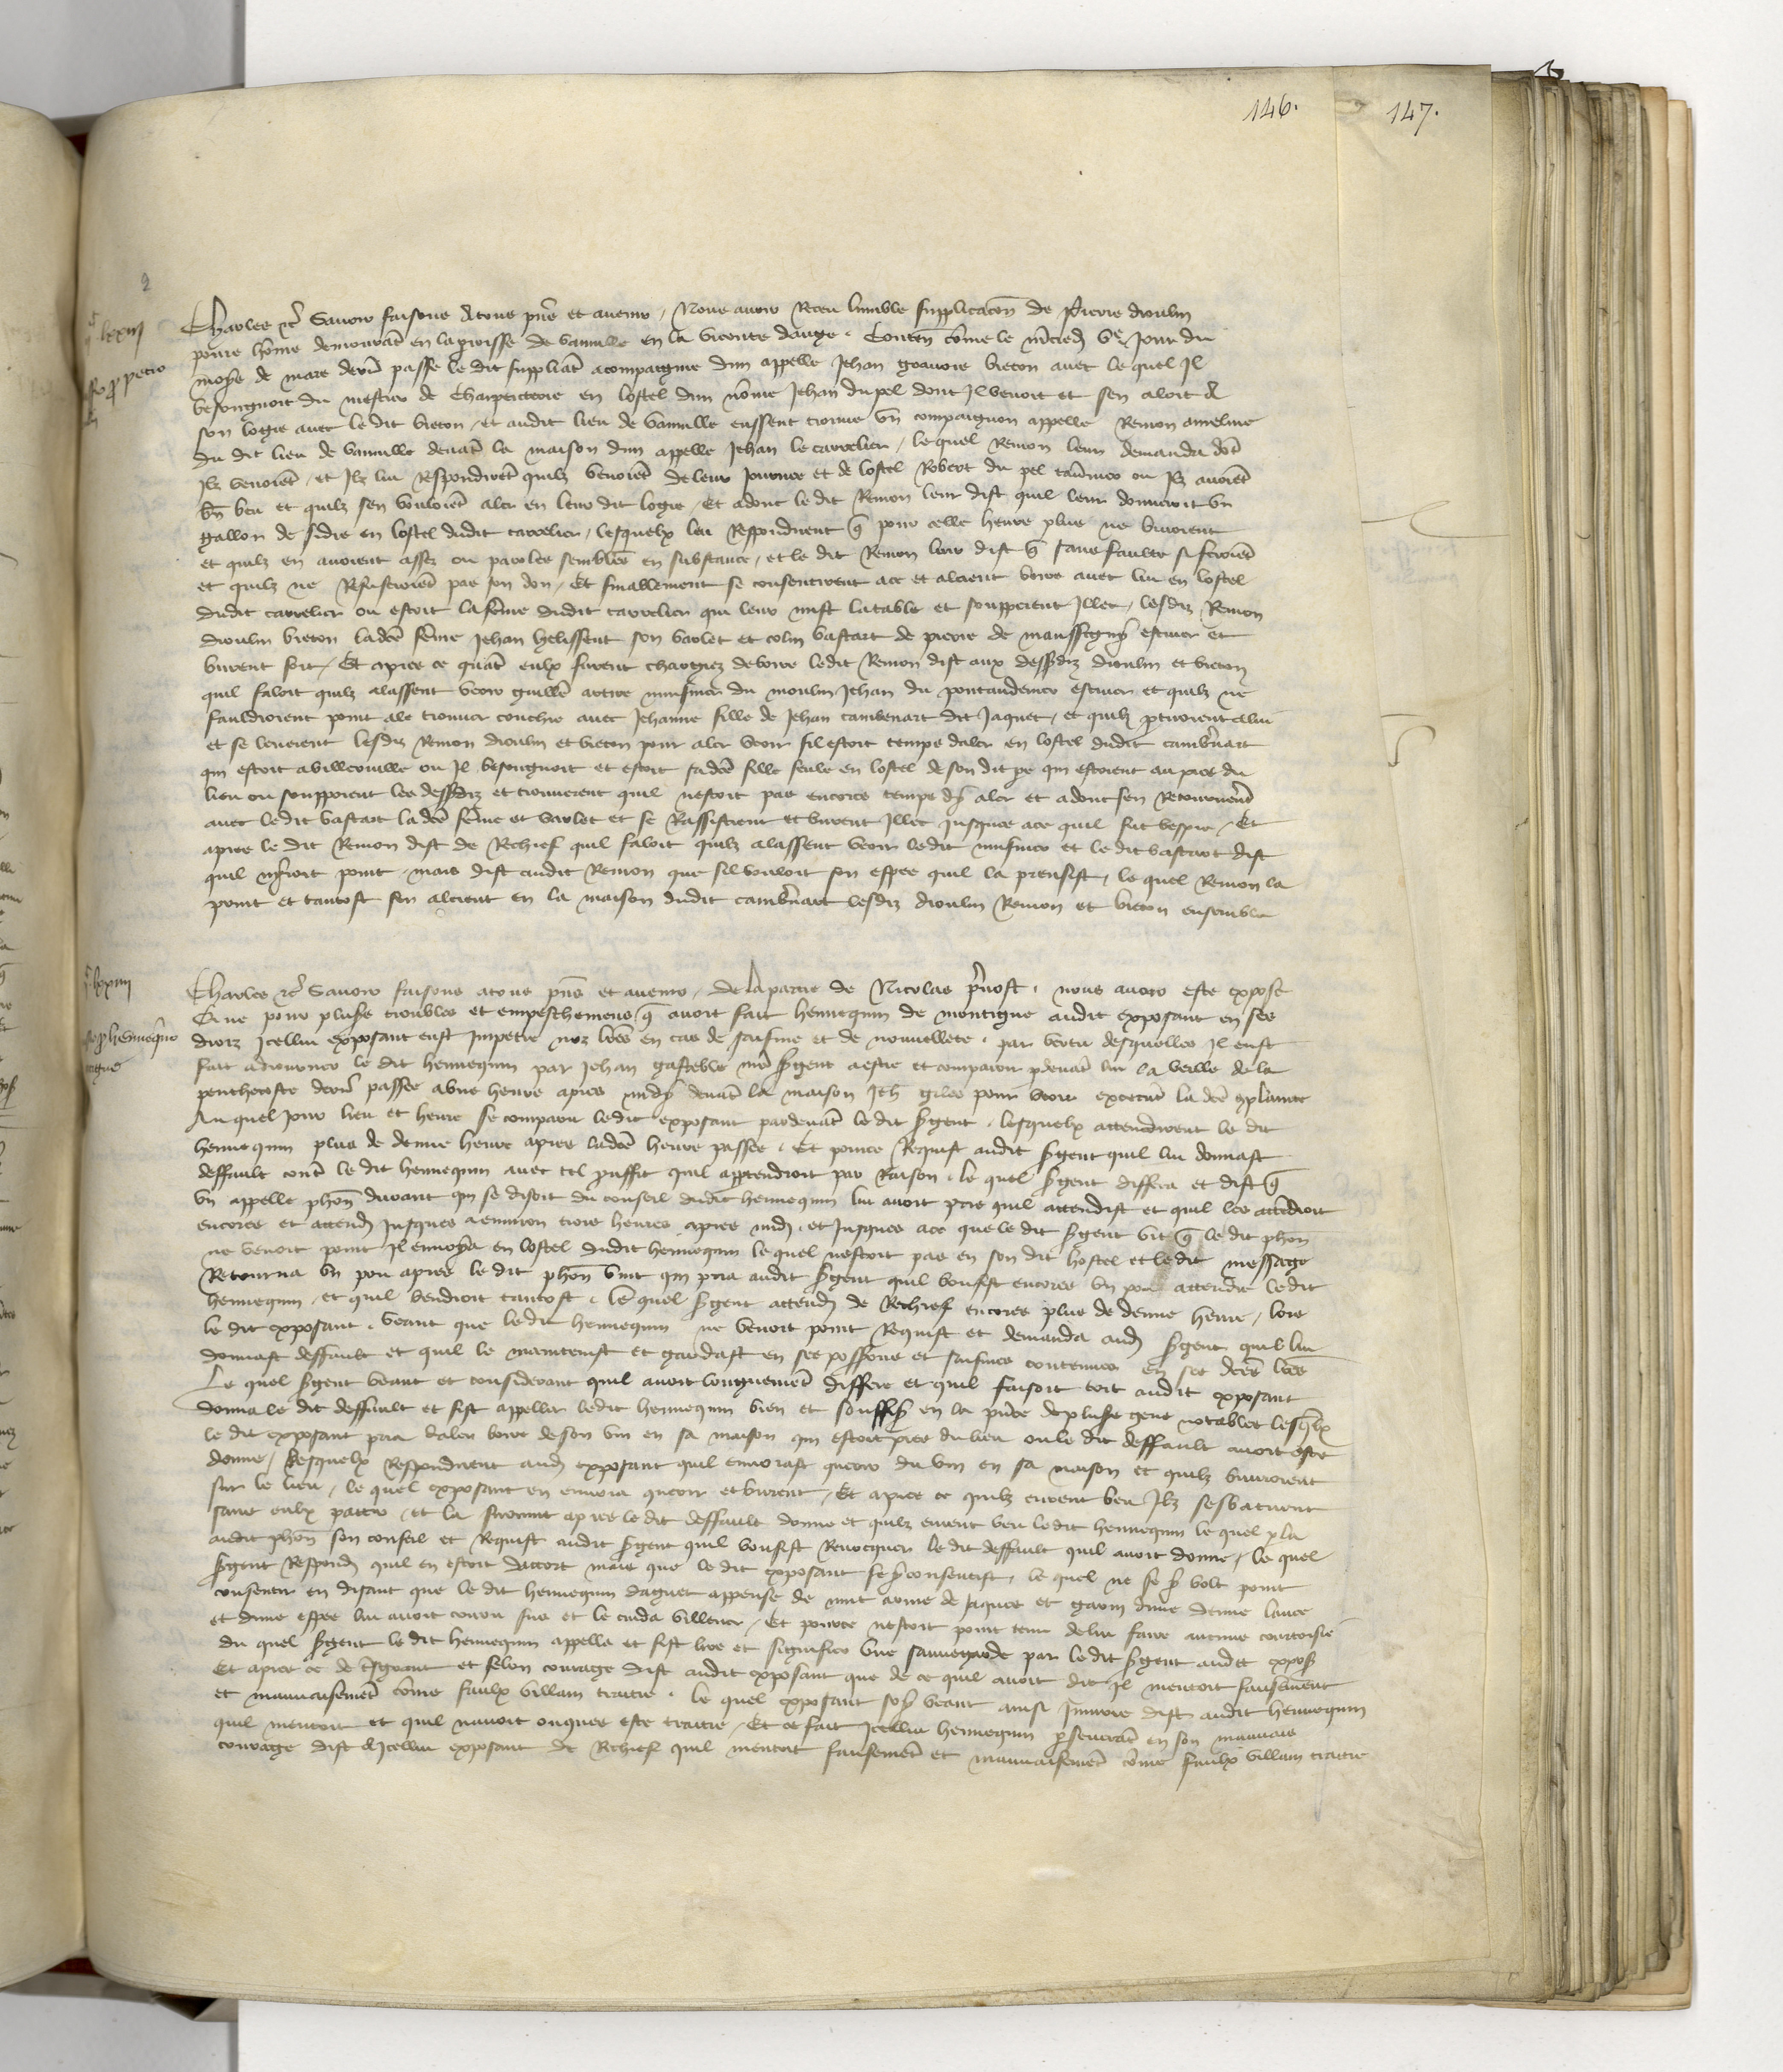 146.
147.
Charles etc Savoir faisons a tous pñs et avenir, Nous avoir receu humble supplicacõn de Pierre
povre hõme demourãt en la parroisse de en la viconte dauge. Conten cõme le mercredi Ve jour du
moys de mare derñ passe le dit suppliãt acompaigne dun appelle Jehan breton avec le quel Il
besongnoit du mestier de charpenterie en lostel dun nõme Jehan dupel dont Il venoit et sen aloit a
son logis avec le dit breton, et audit lieu de eussent trouve un compaignon appelle Remon ameline
du dit lieu de devãt la maison dun appelle Jehan le carrelier, le quel Remon leur demanda dõt
Ilz venoiẽt, et Ilz lui respondirẽt quilz venoiẽt de leur journee et de lostel Robert du pel ou Ilz avoiẽt
beu et quilz sen vouloiẽt aler en leur dit logis, Et adonc le dit Remon leur dist quil leur donneroit un
gallon de sidre en lostel dudit carrelier, lesquelx lui respondirent q̃ pour celle heure plus ne buvroient
et quilz en avoient assez ou paroles semblẽs en substance, et le dit Remon leur dist q̃ sans faulte si feroiẽt
et quilz ne refuseroiẽt pas son don, Et finablement se consentirent a ce et alerent boire avec lui en lostel
dudit carrelier ou estoit la fẽme dudit carrelier qui leur mist la table et soupperent Illec, lesdiz Remon
breton ladcẽ fẽme Jehan helissent son varlet et colin bastart de pierre de escuier et
burent fort, Et apres ce quãt eulx furent chargiez de boire ledit Remon dist aux dessusdiz et breton
quil faloit quilz alassent veoir guillẽ musnier du moulin Jehan du pontaudemer escuier et quilz ne
fauldroient point a le trouver couchie avec Jehanne fille de Jehan dit Jaquet, et quilz
et se leverent lesdiz Remon et breton pour aler veoir sil estoit temps daler en lostel dudit
qui estoit a ou Il besongnoit et estoit sadcẽ fille seule en lostel de son dit pe qui estoient au pres du
lieu ou souppoient les dessusdiz et trouverent quil nestoit pas encores temps dy aler et adonc sen retournerẽt
avec ledit bastart ladcẽ fẽme et varlet et se rassistrent et burent Illec jusques a ce quil fut vespre, Et
apres le dit Remon dist de rechief quil faloit quilz alassent veoir ledit musnier et le dit bastart dist
quil nyroit point, mais dist audit Remon que sil vouloit son espee quil la prensist, le quel Remon la
print et tantost sen alerent en la maison dudit lesdiz Remon et breton ensemble
Charles etc Savoir faisons a tous pñs et avenir, De la partie de Nicolas p̃vost, nous avoir este expose
Que pour plus̃rs troubles et empeschemens q̃ avoit fait hennequin de montigne audit exposant en ses
droiz Icellui exposant eust Impetre noz lẽes en cas de saisine et de nouvellete, par vertu desquelles Il eust
fait adiourner le dit hennequin par Jehan nr̃e sergent a estre et comparoir p devãt lui la veille de la
penthecoste derñ passee a une heure apres midy devãt la maison Jeh̃ giles pour veoir executer ladcẽ cõplainte
Au quel jour lieu et heure se comparu ledit exposant pardevãt le dit sergent, lesquelx attendirent le dit
hennequin plus de demie heure apres ladcẽ heure passee, Et pource requist audit sergent quil lui donnast
deffault contẽ le dit hennequin avec tel prouffit quil appendroit par raison, le quel sergent differa et dist q̃
un appelle phõn durant qui se disoit du conseil dudit hennequin lui avoit prie quil attendist et quil les attẽdroit
encores et attendi jusques a environ trois heures apres midi, et jusques a ce que le dit sergent vit q̃ le dit phõn
ne venoit point Il envoya en lostel dudit hennequin le quel nestoit pas en son dit hostel et le dit message
Retourna un pou apres le dit phõn vint qui pria audit sergent quil voulsist encores un pou attendre ledit
hennequin, et quil vendroit tantost, le quel sergent attendi de rechief encores plus de demie heure, lors
le dit exposant, veant que ledit hennequin ne venoit point requist et demanda audi sergent quil lui
donnast deffault et quil le maintenist et gardast en ses poss̃ons et saisines contenues en ses dcẽs lẽes
Le quel sergent veant et considerant quil avoit longuemẽt differe et quil faisoit tort audit exposant
donna le dit deffault et fist appeller ledit hennequin bien et souffis̃ en la pñce de plus̃rs gens notables lesq̃lx
le dit exposant pria daler boire de son vin en sa maison qui estoit pres du lieu ou le dit deffault avoit este
donne, lesquelx respondirent audi exposant quil envoiast querir du vin en sa maison et quilz buvroient
sur le lieu, le quel exposant en envoia querir et burent, Et apres ce quilz eurent beu Ilz sesbatirent
sans eulx partir, et la survint apres le dit deffault donne et quilz eurent beu ledit hennequin le quel p̱la
audit phõn son conseil et requist audit sergent quil voulsist revocquer le dit deffault quil avoit donne, le quel
sergent respondi quil en estoit daccort mais que le dit exposant se y consentist, le quel ne se y volt point
consentir en disant que le dit hennequin daguet appense de nuit arme de jaques et garni dune demie lance
et dune espee lui avoit couru sus et le cuida villener, Et pource nestoit point tenu de lui faire aucune courtoisie
du quel sergent le dit hennequin appella et fist lire et signifier une sauvegarde par le dit sergent audit expos̃
Et apres ce de et felon courage dist audit exposant que de ce quil avoit dit Il mentoit fausemẽt
et mauvaisemẽt cõme faulx villain traitre, le quel exposant soy veant ainsi Injurie dist audit hennequin
quil mentoit et quil navoit onques este traitre, Et ce fait Icellui hennequin p̱severãt en son mauvais
courage dist a Icellui exposant de rechief quil mentoit fausemẽt et mauvaisemẽt cõme faulx villain traitre